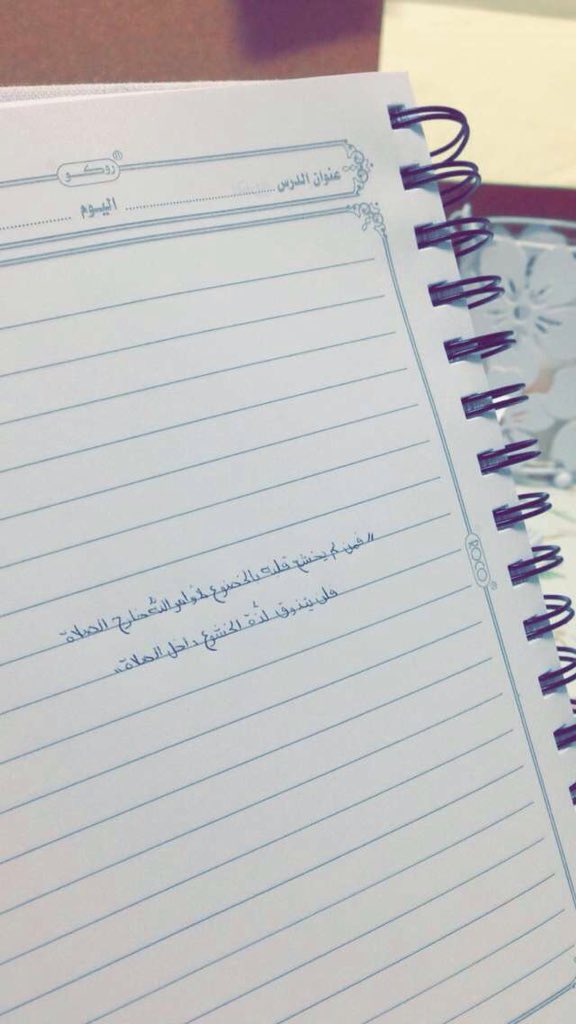 روكو
عنوان الدرس
اليوم
"فمن لم يخشع قلبه بالخضوع لأوامر الله خارج الصلاة
فلن يتذوق لذة الخشوع داخل الصلاة"
ROCO